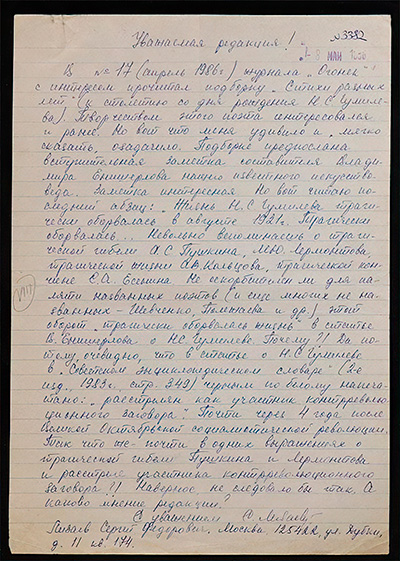 №3382
- 8 МАЙ 1986
Уважаемая редакция!
В №17 (апрель 1986г) журнала „Огонек"
с интересом прочитал подборку „Стихи разных
лет" (к столетию со дня рождения Н.С. Гумиле-
ва). Творчеством этого поэта интересовался
и ранее. Но вот что меня удивило и, мягко
сказать, озадачило. Подборке предпослана
вступительная заметка составителя Влади-
мира Енишерлова нашего известного искусство-
веда. Заметка интересная. Но вот читаю по-
следний абзац: „Жизнь Н.С. Гумилева траги-
чески оборвалась в августе 1921г. Трагически
оборвалась... Невольно вспоминаешь о траги-
ческой гибели А.С. Пушкина, М.Ю. Лермонтова,
трагической жизни А.В. Кольцова, трагической кон-
чине С.А. Есенина. Не оскорбителен ли для па-
мяти названных поэтов (и еще многих не на-
званных - Шевченко, Полежаева и др.) этот
оборот „трагически оборвалась жизнь" в статье
В. Енишерлова о Н.С. Гумилеве. Почему?! Да по-
тому, очевидно, что в статье о Н.С. Гумилеве
в „Советском энциклопедическом словаре" (2-е
изд., 1983г. стр. 349) черным по белому напеча-
тано: „расстрелян как участник контрреволю-
ционного заговора". Почти через 4 года после
Великой Октябрьской социалистической революции.
Так что же - почти в одних выражениях о
трагической гибели Пушкина и Лермонтова
и расстреле участника контрреволюционного
заговора!! Наверное, не следовало бы так. А
каково мнение редакции?
С уважением С.
Сергей Федорович. Москва 125422, ул.
д. 11 кв. 174.